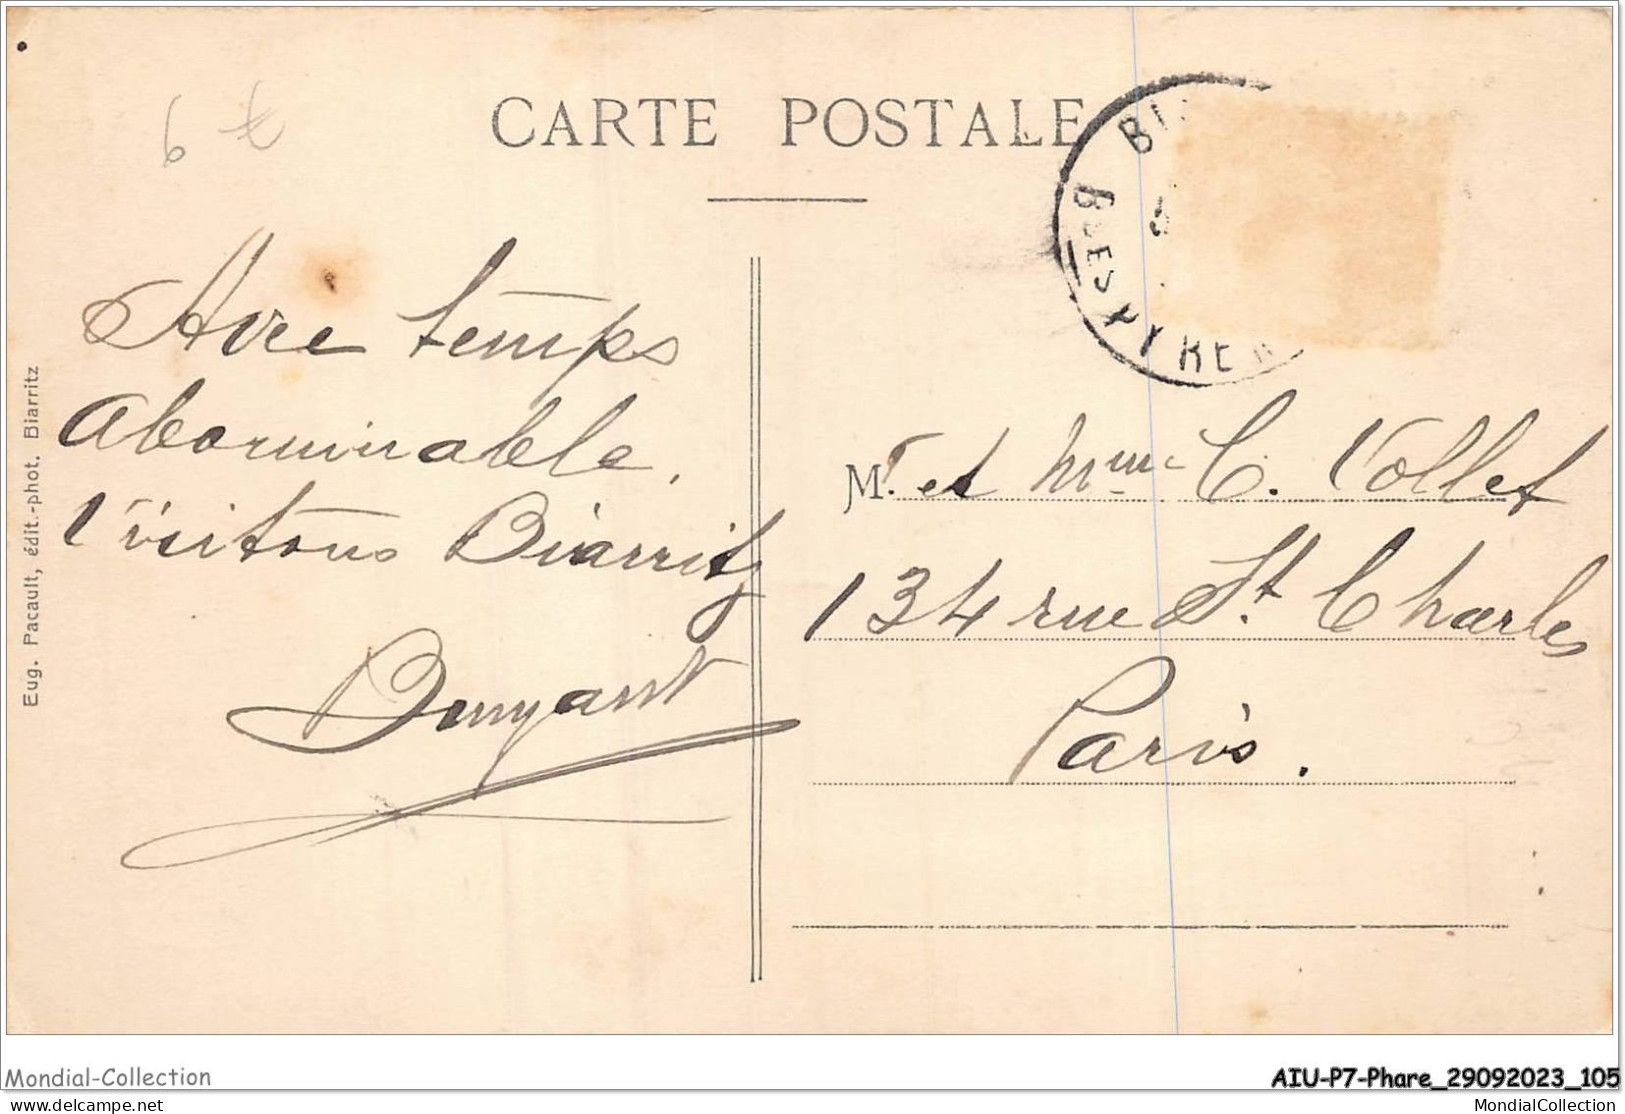 CARTE POSTALE
6 €
Avec temps
abominable,
Visitons Biarritz
Eug. Pacault, édit.-phot. Biarritz
BI
BSES PYRE
M. et Mme C. Vollet
134 rue St. Charles
Paris.
Mondial-Collection
AIU-P7-Phare_29092023_105
delcampe.net
MondialCollection